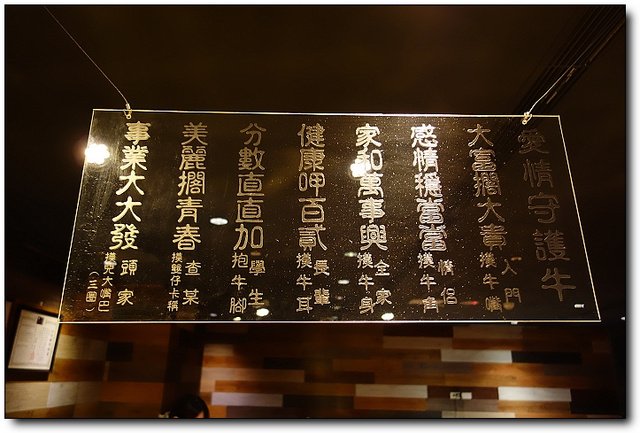 愛情守護牛
大富擱大貴 入門 摸牛嘴
感情穩當當 情侶 摸牛角
家和萬事興 全家 摸牛身
健康呷百貳 長輩 摸牛耳
分數直直加 學生 抱牛腳
美麗擱青春 查某 摸仔卡稱
事業大大發 頭家 摸大嘴巴（三圈）